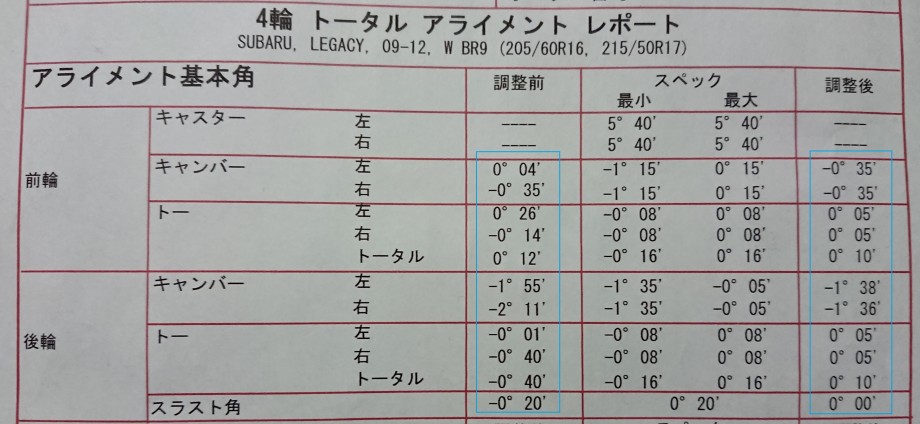 4輪 トータル アライメント レポート
SUBARU, LEGACY, 09-12, W BR9 (205/60R16, 215/50R17)
アライメント基本角 調整前 スペック 調整後
最小 最大
キャスター 左 ---- 5° 40' 5° 40' ----
右 ---- 5° 40' 5° 40' ----
前輪
キャンバー 左 0° 04' -1° 15' 0° 15' -0° 35'
右 -0° 35' -1° 15' 0° 15' -0° 35'
トー 左 0° 26' -0° 08' 0° 08' 0° 05'
右 -0° 14' -0° 08' 0° 08' 0° 05'
トータル 0° 12' -0° 16' 0° 16' 0° 10'
後輪
キャンバー 左 -1° 55' -1° 35' -0° 05' -1° 38'
右 -2° 11' -1° 35' -0° 05' -1° 36'
トー 左 -0° 01' -0° 08' 0° 08' 0° 05'
右 -0° 40' -0° 08' 0° 08' 0° 05'
トータル -0° 40' -0° 16' 0° 16' 0° 10'
スラスト角 -0° 20' 0° 20' 0° 00'